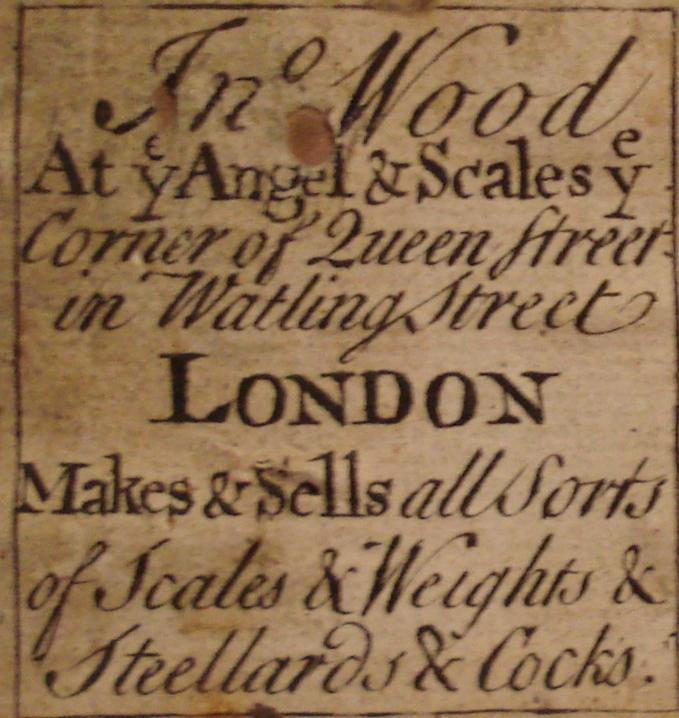 Jn⁰ Wood
At yᵉ Angel & Scales yᵉ
Corner of Queen Street
in Watling Street
LONDON
Makes & Sells all Sorts
of Scales & Weights &
Steellards & Cocks.